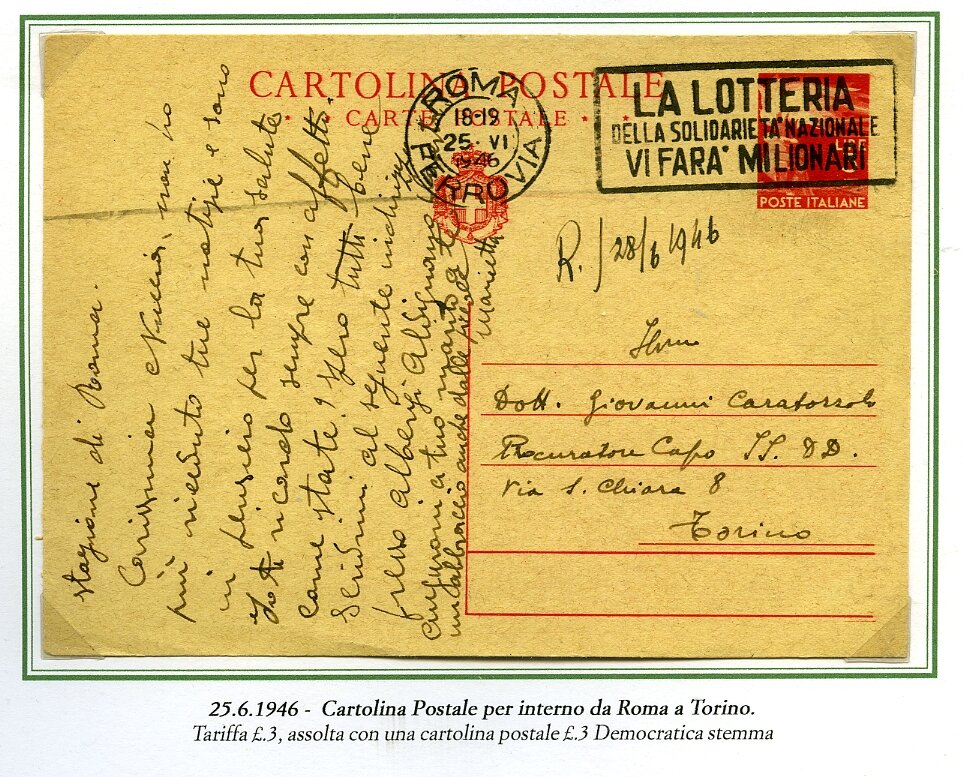 CARTOLINA POSTALE
CARTE POSTALE
ROMA
FERROVIA
18-19
25 VI
1946
LA LOTTERIA
DELLA SOLIDARIETA' NAZIONALE
VI FARA' MILIONARI
POSTE ITALIANE
R. / 28/6 1946
Dott. Giovanni
Procuratore Capo II. DD.
Via S. Chiara 8
Torino
stazione di Roma.
Carissima Nuccia, non ho
più ricevuto tue notizie e sono
in pensiero per la tua salute
ti ricordo sempre con affetto.
come state? spero tutti bene
Scrivimi al seguente indirizzo
presso Alberg
a tuo marito a te
un abbraccio anche dalle
Marietta
25.6.1946 - Cartolina Postale per interno da Roma a Torino.
Tariffa £.3, assolta con una cartolina postale £.3 Democratica stemma